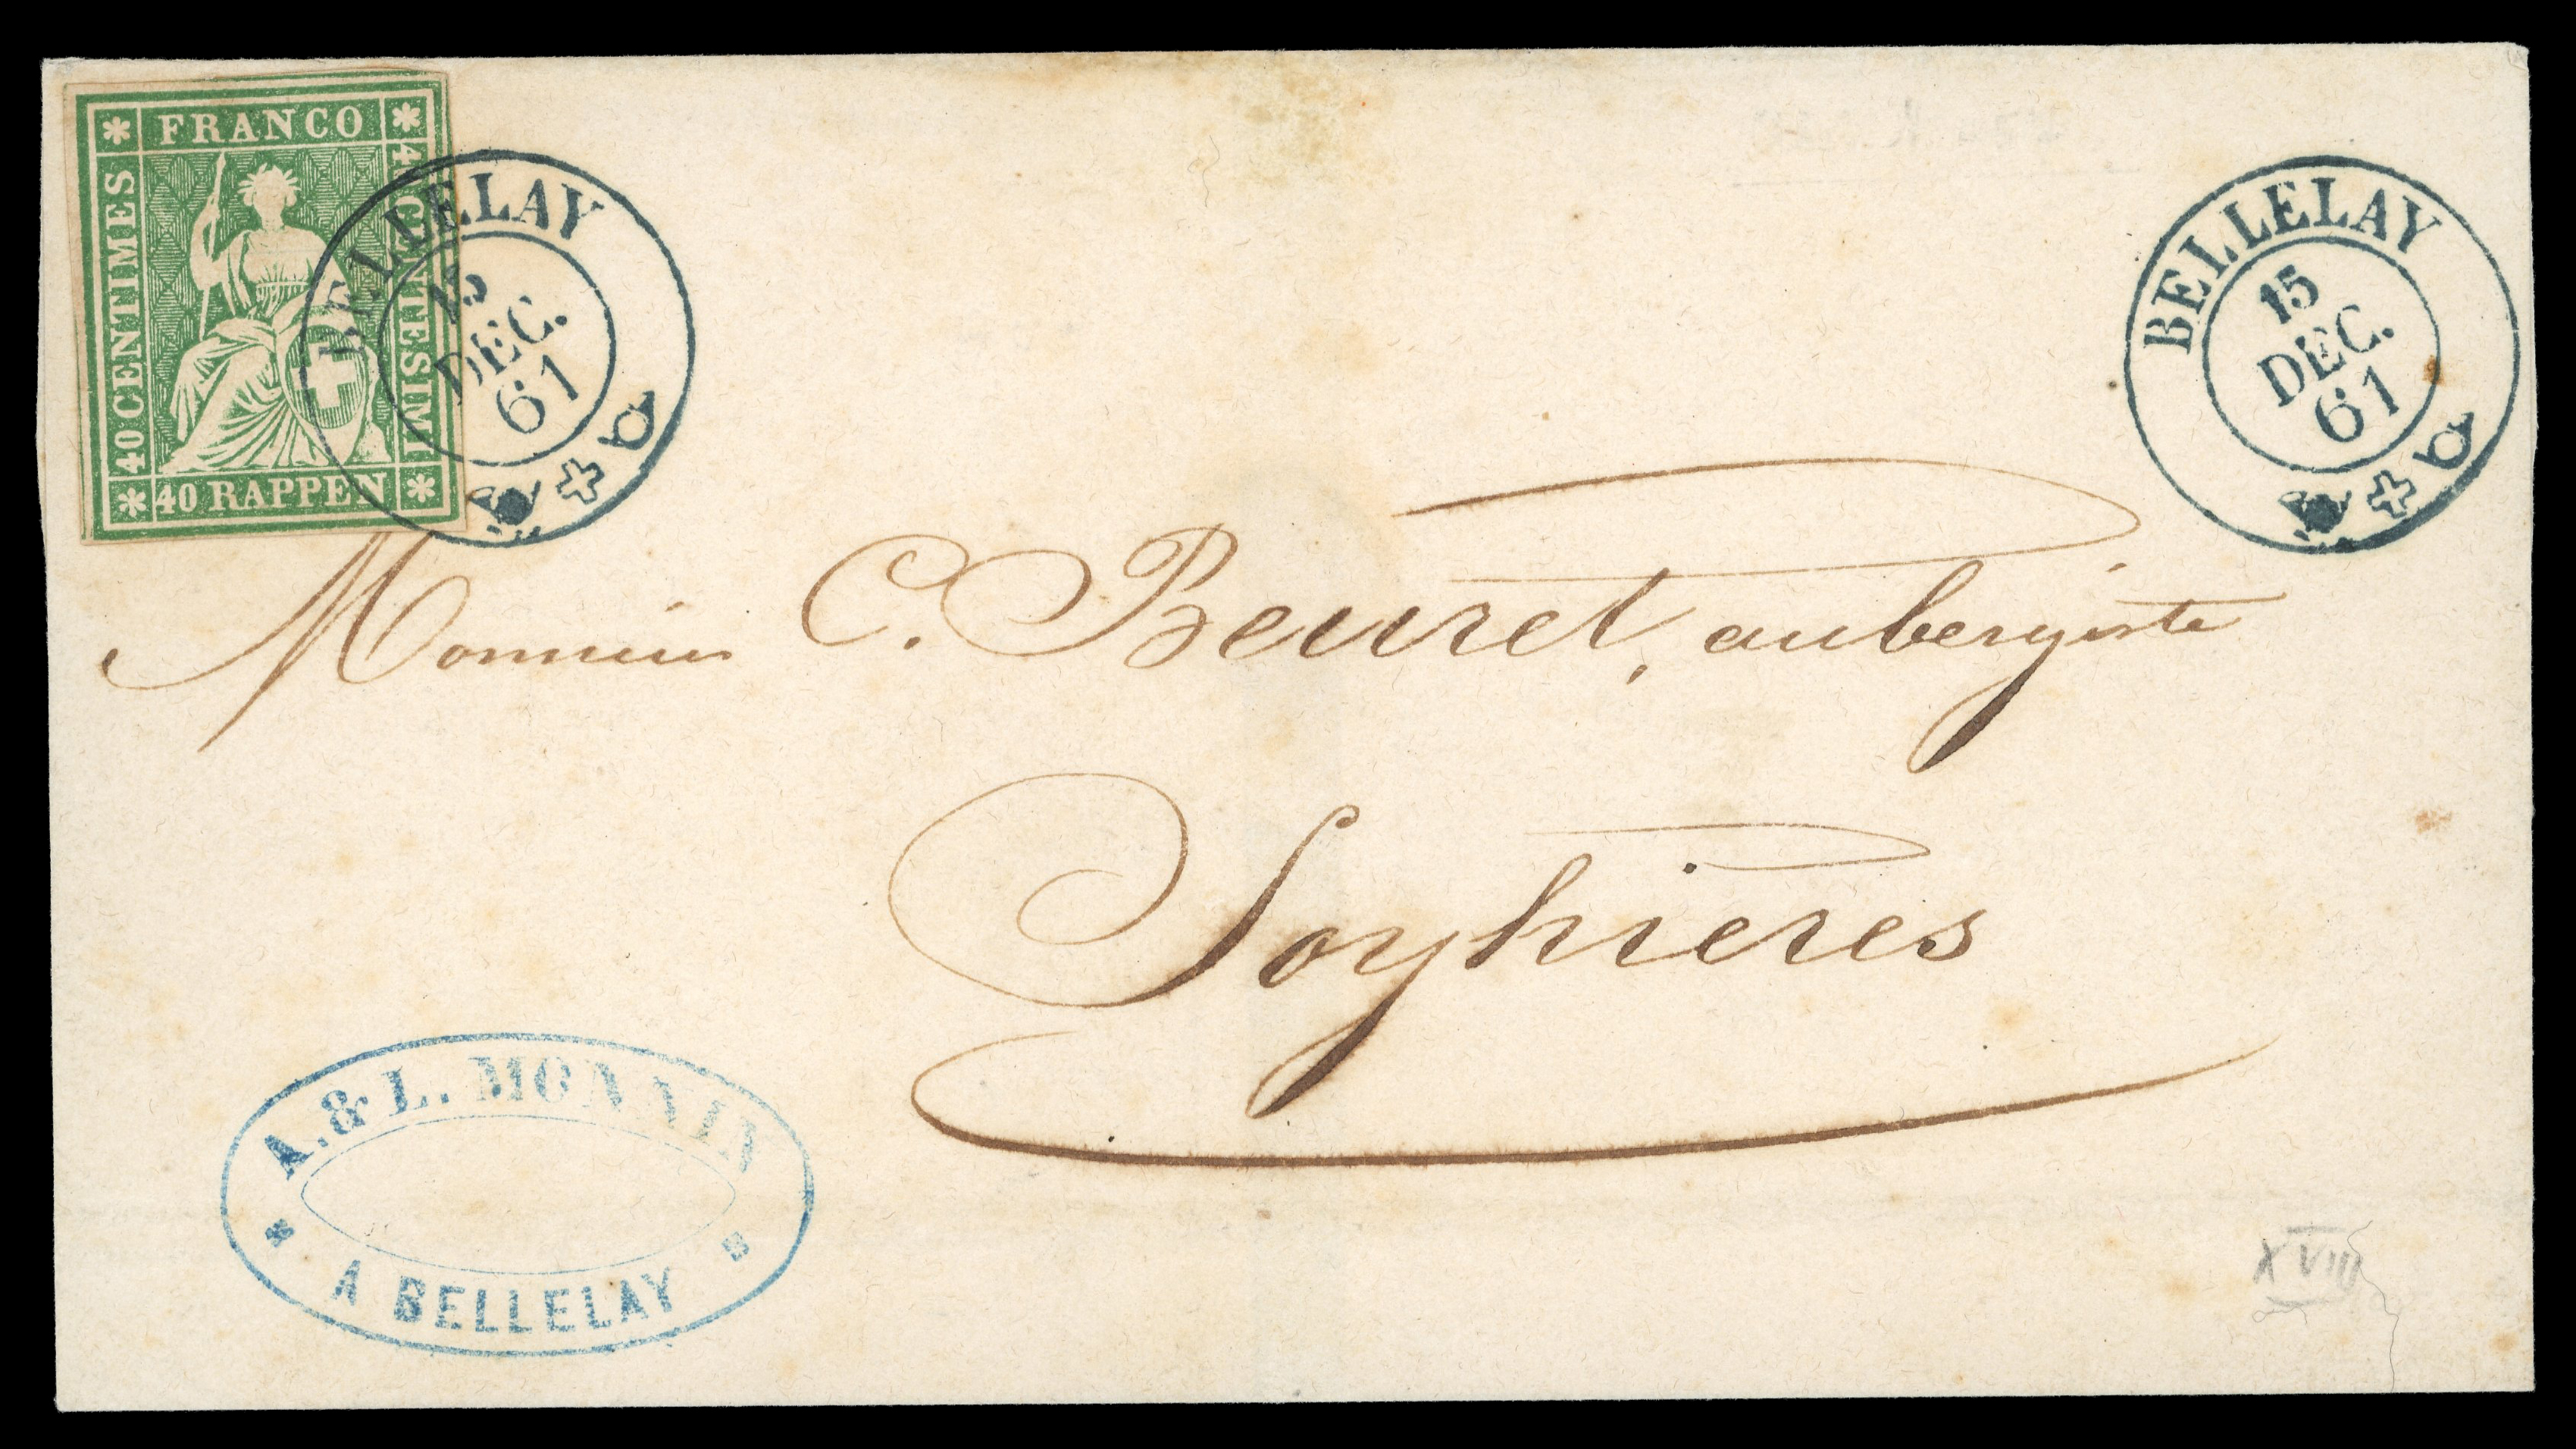 FRANCO
40 CENTIMES
40 CENTESIMI
40 RAPPEN
BELLELAY
15
DEC.
61
BELLELAY
15
DEC.
61
Monsieur C. Beuret, aubergiste
Soyhières
A. & L. MONNIN
A BELLELAY
XVIII